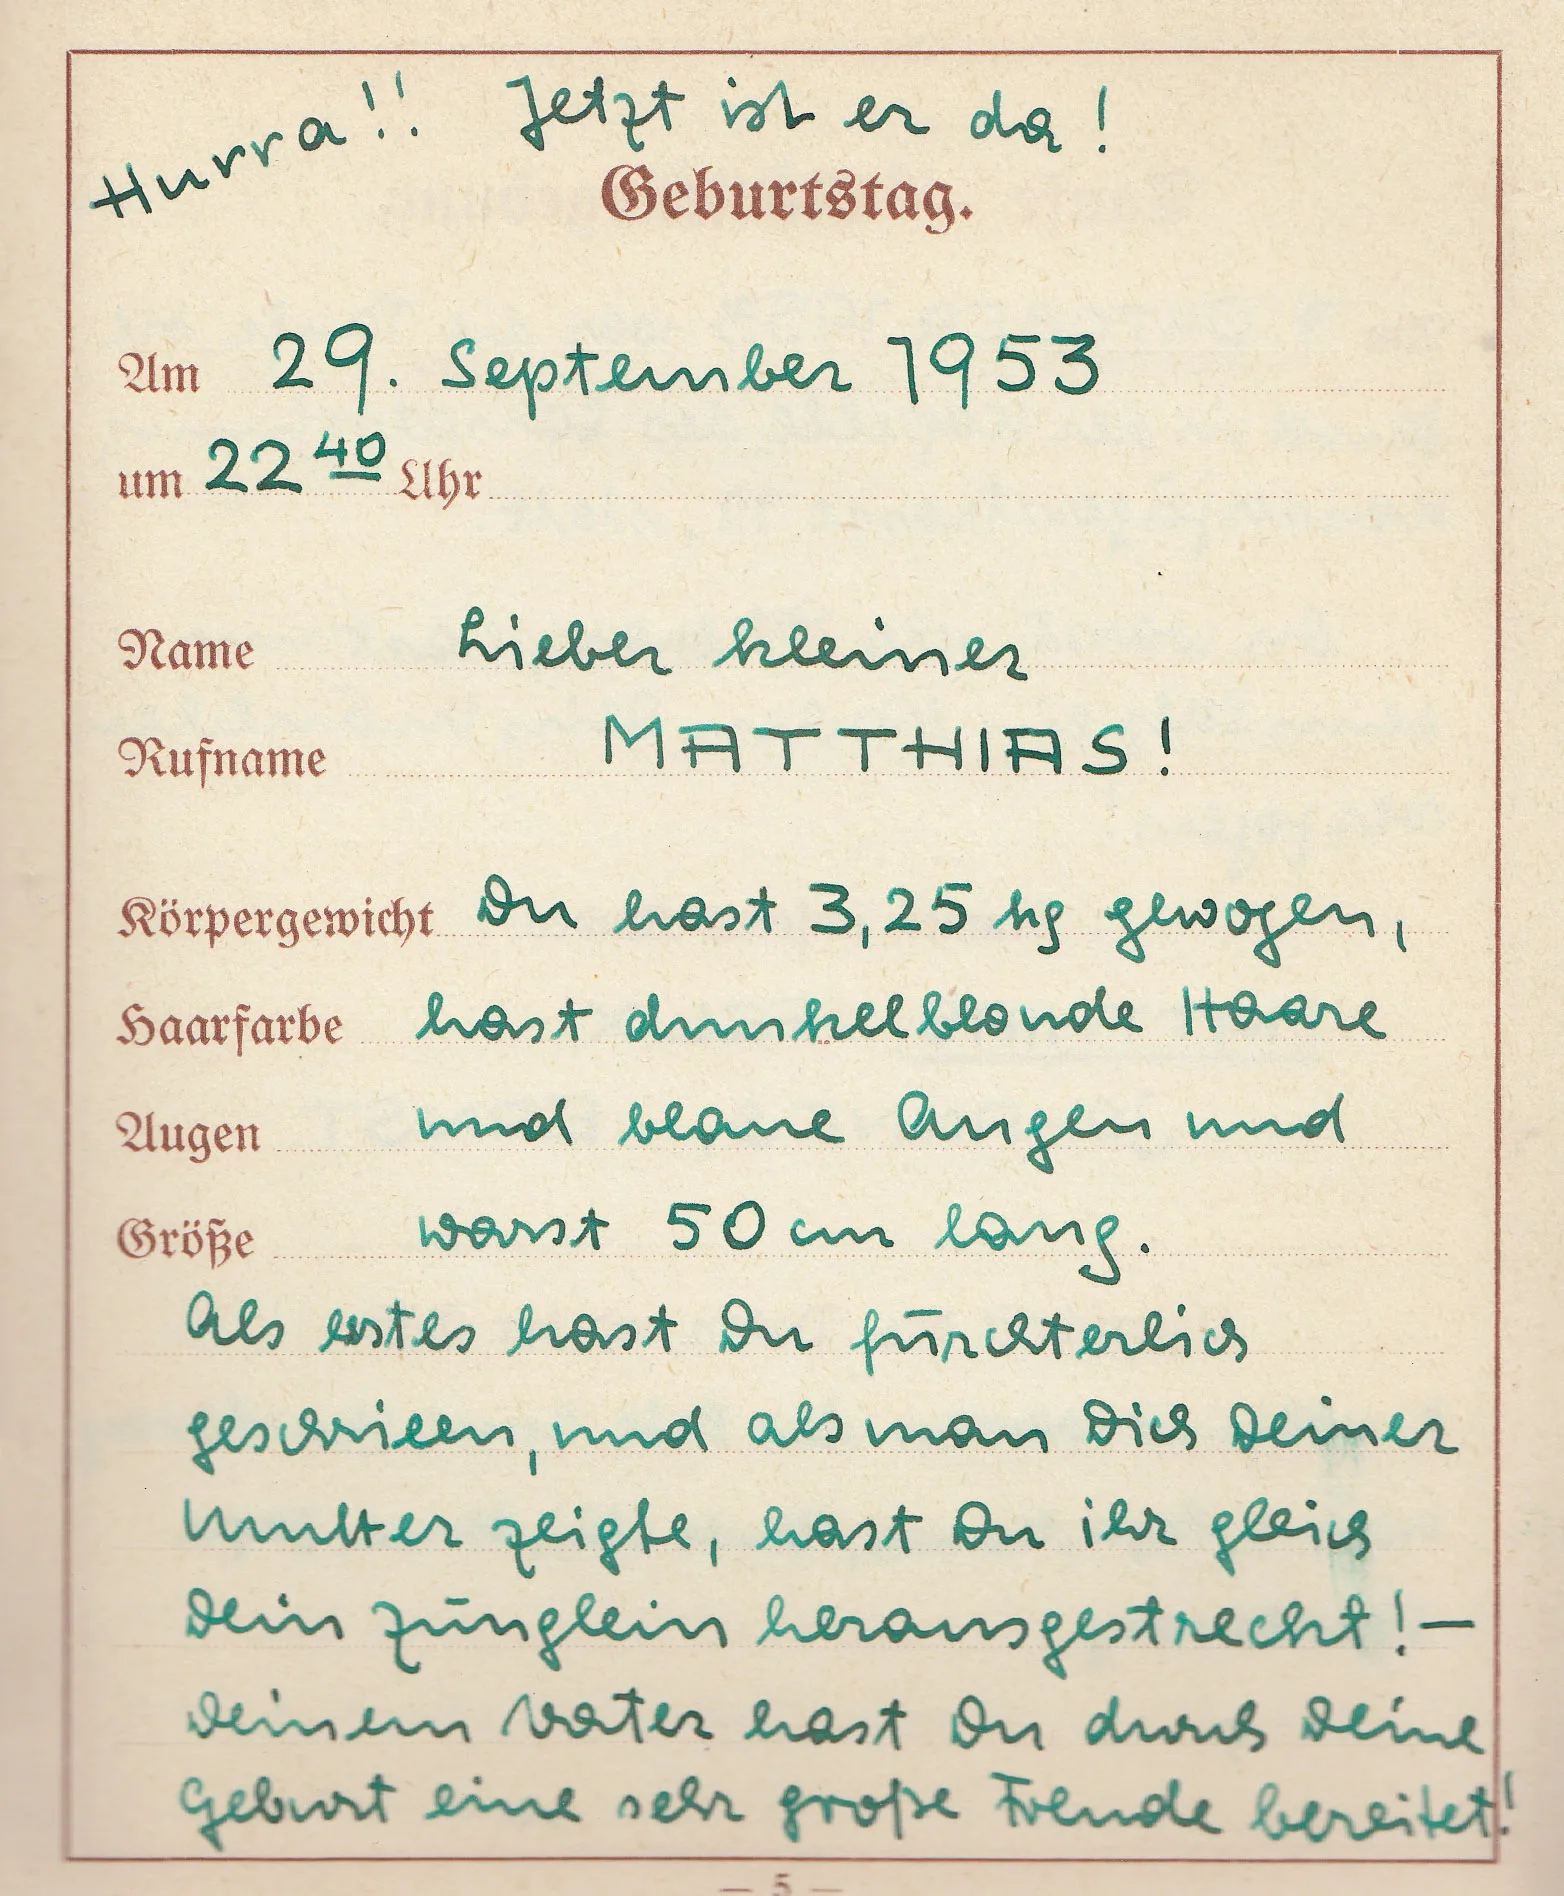 Hurra!! Jetzt ist er da!
Geburtstag.
Am 29. September 1953
um 22 40 Uhr
Name Lieber kleiner
Rufname MATTHIAS!
Körpergewicht Du hast 3,25 kg gewogen,
Haarfarbe hast dunkelblonde Haare
Augen und blaue Augen und
Größe warst 50 cm lang.
Als erstes hast Du fürchterlich
geschrieen, und als man Dich Deiner
Mutter zeigte, hast Du ihr gleich
Dein Zünglein herausgestreckt! —
Deinem Vater hast Du durch Deine
Geburt eine sehr große Freude bereitet!
— 5 —